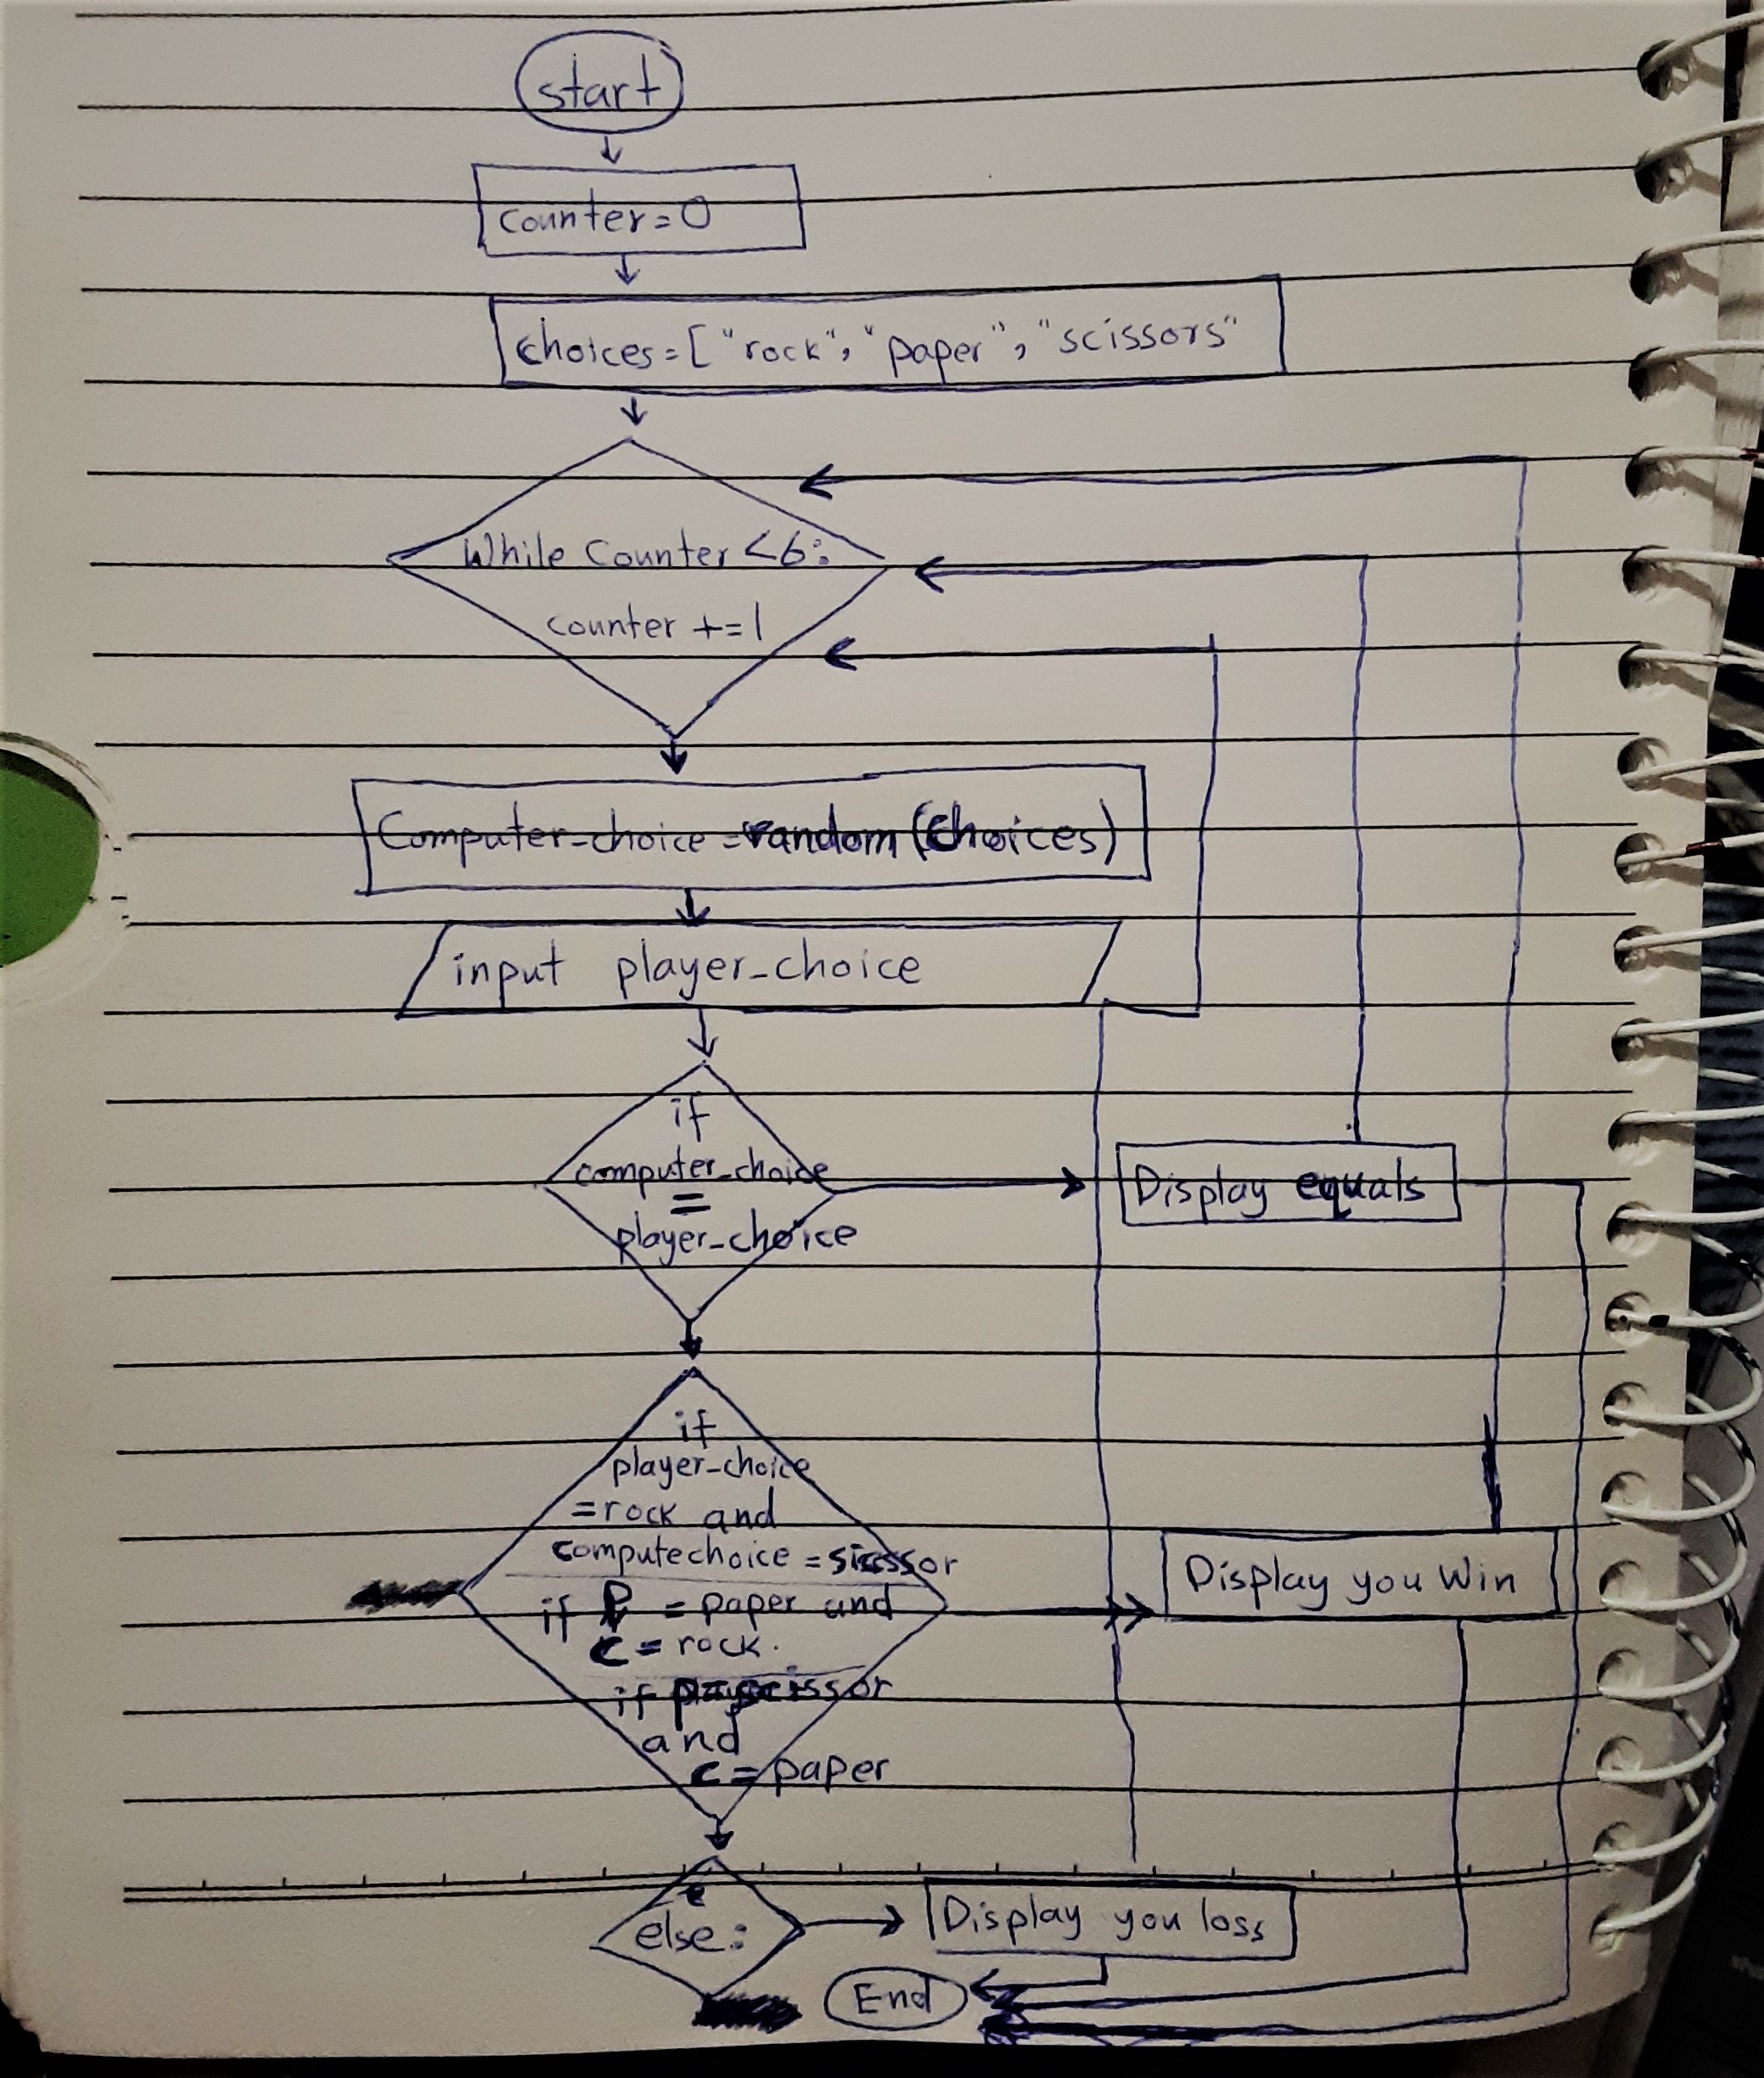 start
counter=0
choices=["rock", "paper", "scissors"
While Counter <6:
counter +=1
Computer-choice =random(choices)
input player-choice
if
computer-choice
=
player-choice
Display equals
if
player-choice
=rock and
computechoice =
Display you Win
if P = paper and
c = rock.
if scissor
and
c = paper
else:
Display you loss
End